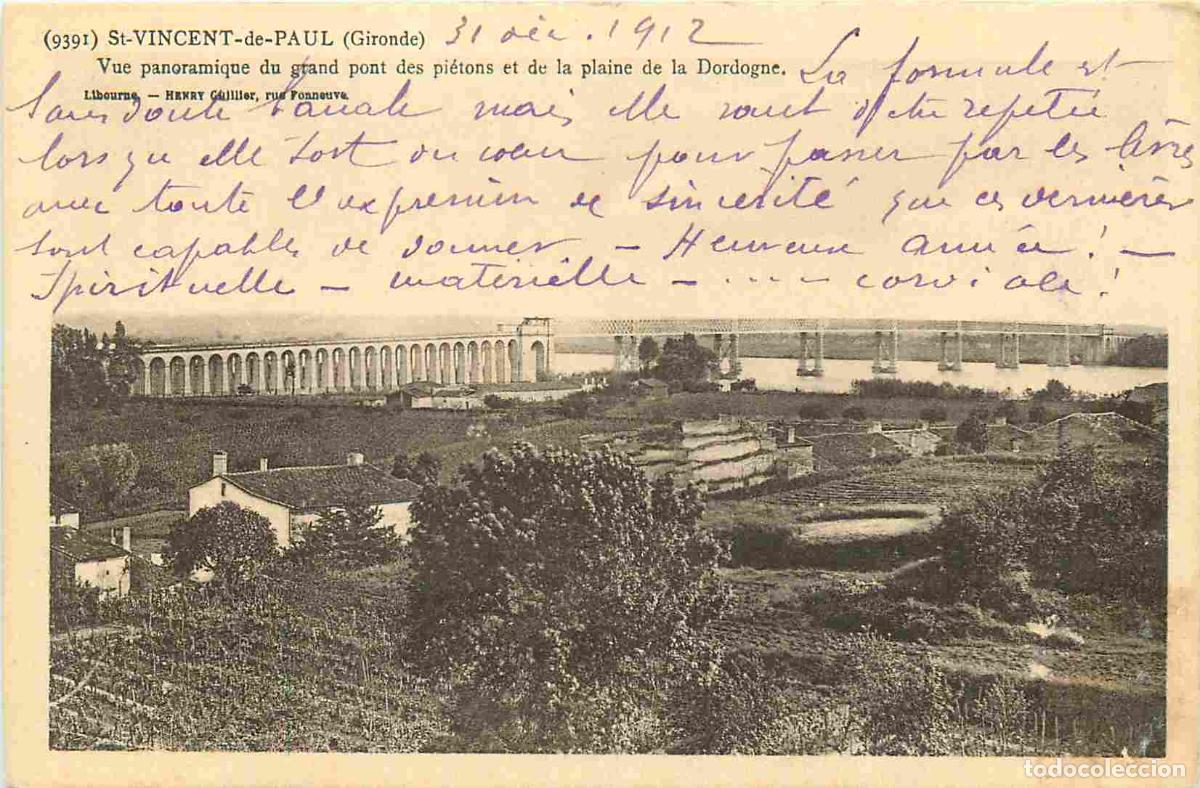 (9391) St-VINCENT-de-PAUL (Gironde) 31 déc. 1912
Vue panoramique du grand pont des piétons et de la plaine de la Dordogne.
Libourne. — HENRY Guillier, rue Fonneuve.
La formule est
sans doute banale mais elle vaut d'être repetée
lorsqu'elle sort du cœur pour passer par les lèvres
avec toute l'expression de sincérité que ces dernières
sont capables de donner — Heureuse année ! —
Spirituelle — matérielle — ... — cordiale !
todocoleccion